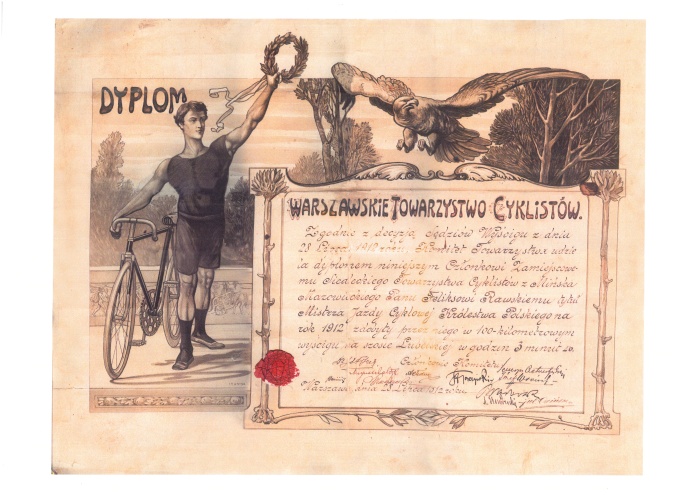 DYPLOM
WARSZAWSKIE TOWARZYSTWO CYKLISTÓW.
Zgodnie z decyzją Sędziów Wyścigu z dnia
28 Lipca 1912 roku, Komitet Towarzystwa udzie
la dyplomem niniejszym Członkowi Zamiejscowe
mu Siedleckiego Towarzystwa Cyklistów z Mińska
Mazowieckiego Panu Feliksowi Rawskiemu tytuł
Mistrza Jazdy Cyklowej Królestwa Polskiego na
rok 1912 zdobyty przez niego w 100-kilometrowym
wyścigu na szosie Lubelskiej w godzin 3 minut
Członkowie Komitetu
Warszawa, dnia 28 Lipca 1912 roku